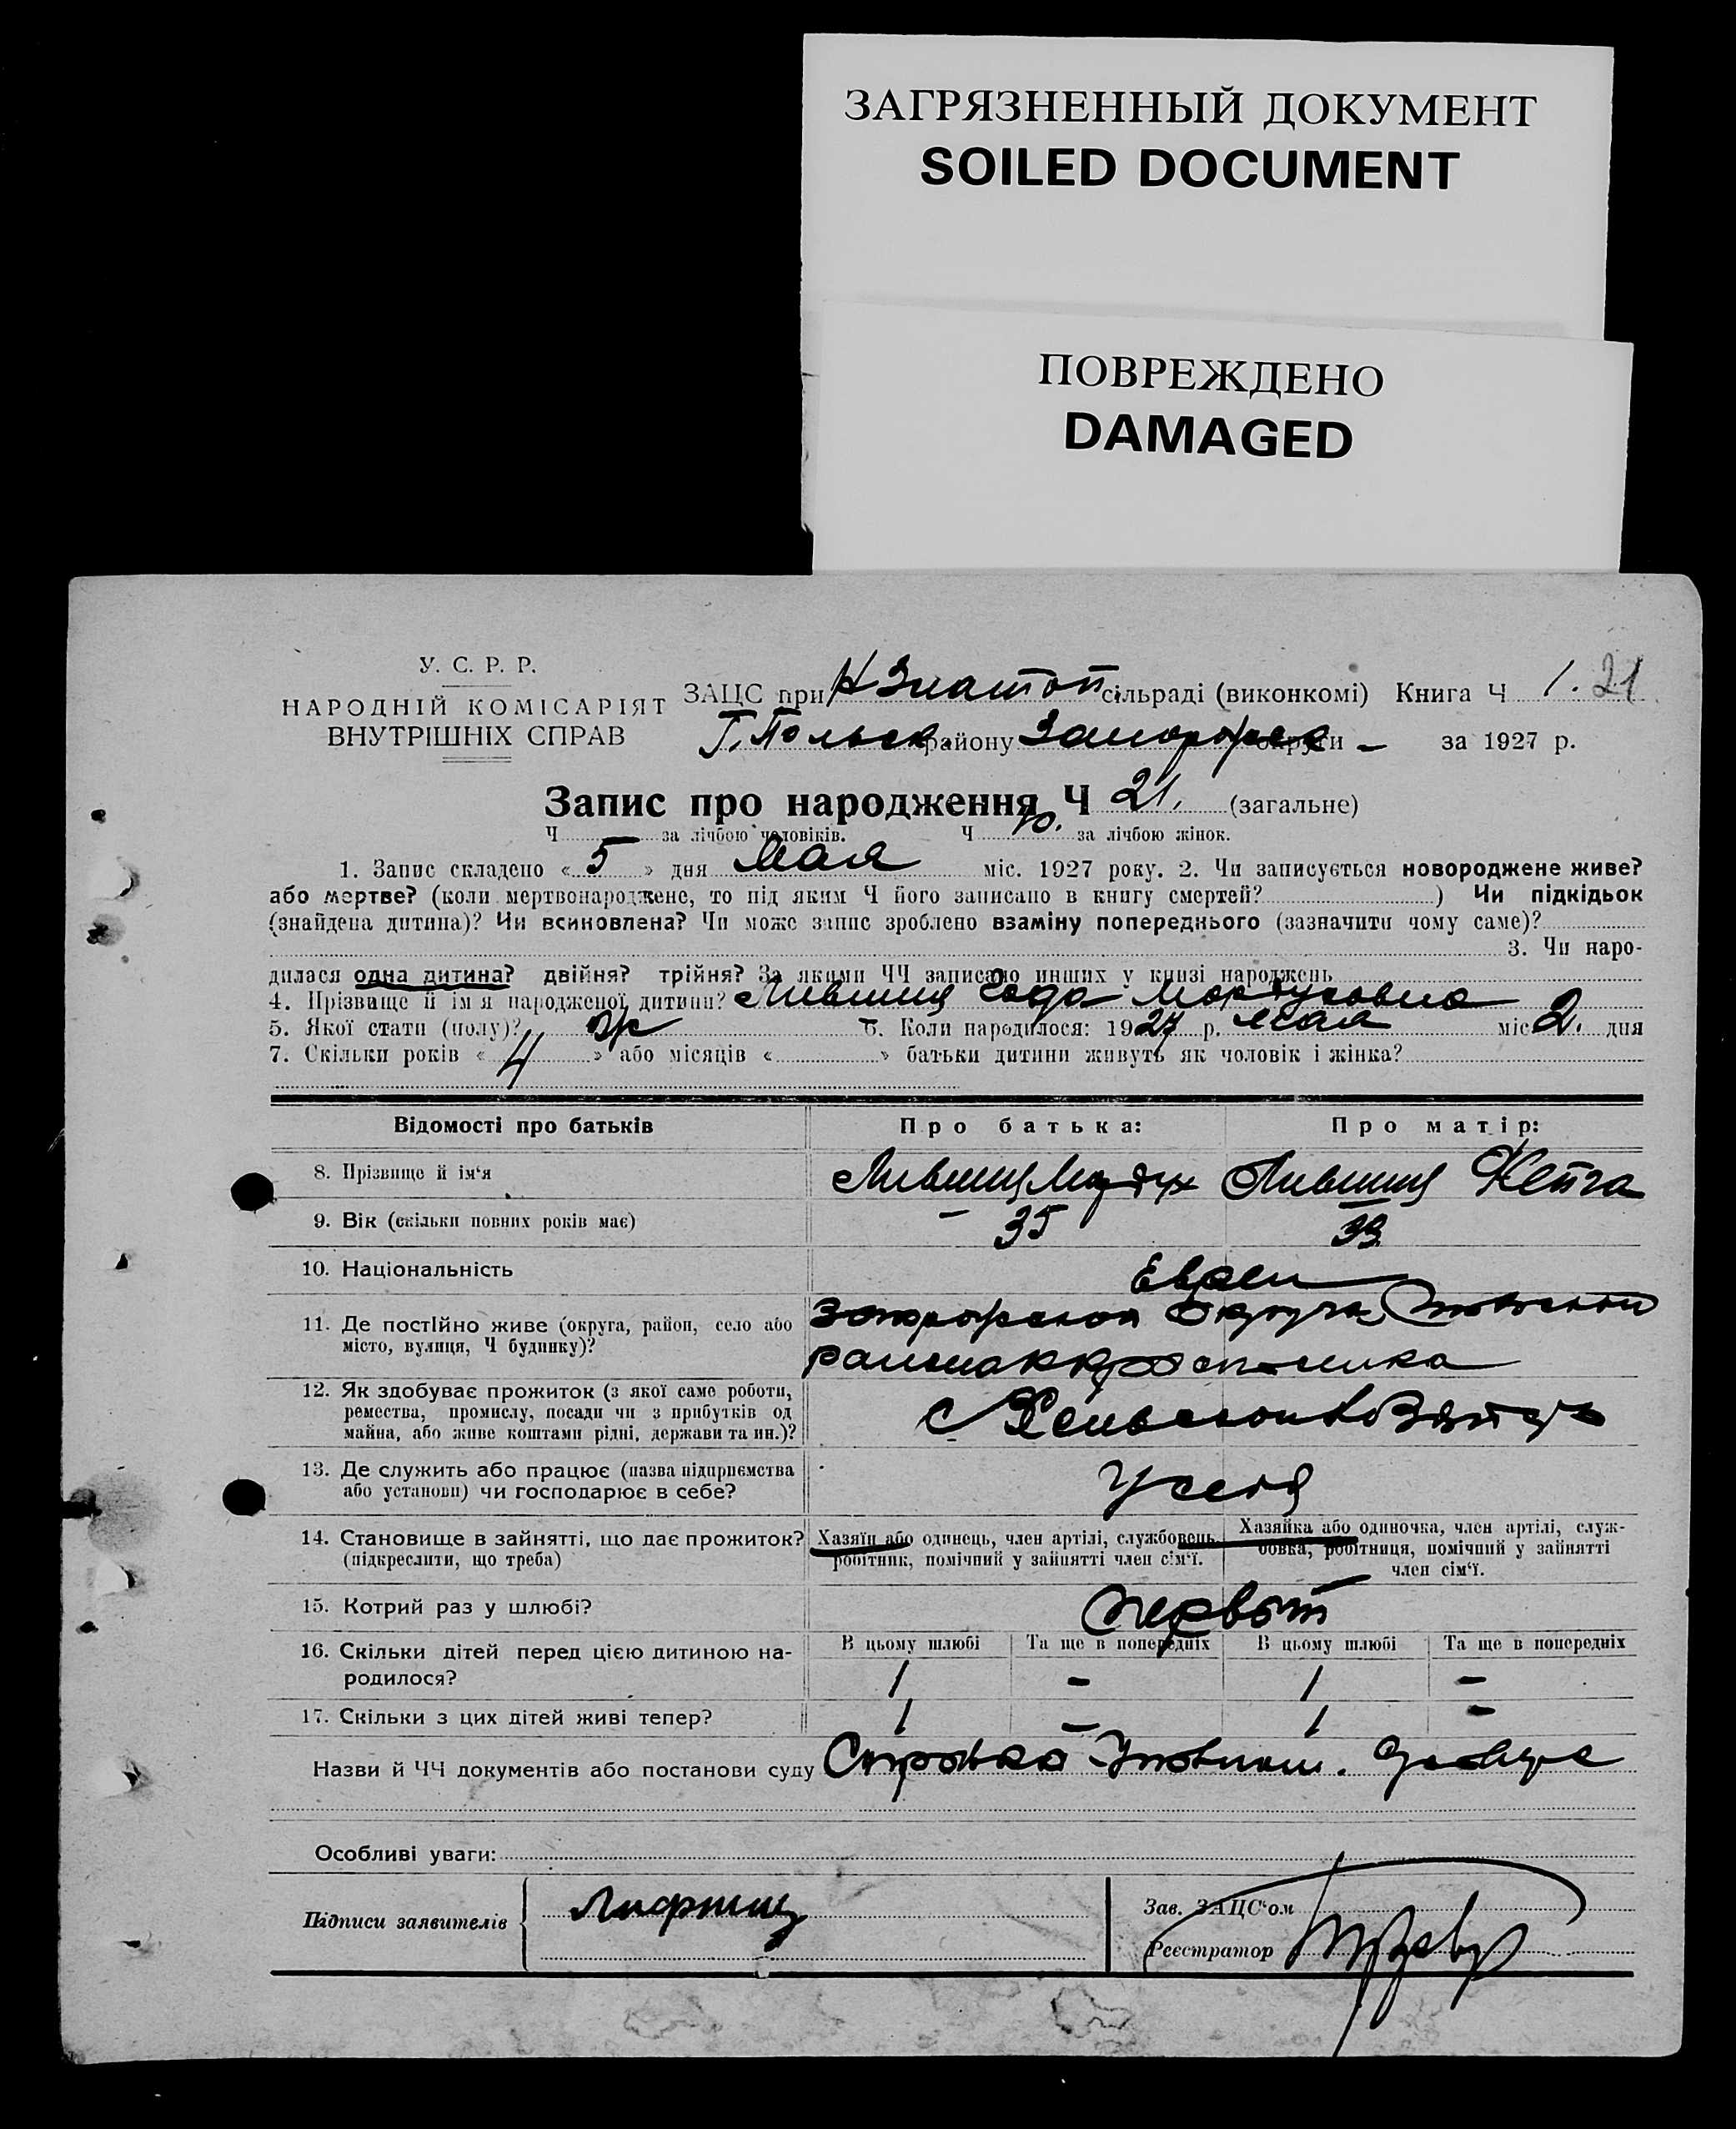 ЗАГРЯЗНЕННЫЙ ДОКУМЕНТ
SOILED DOCUMENT
ПОВРЕЖДЕНО
DAMAGED
У. С. Р. Р.
НАРОДНІЙ КОМІСАРІЯТ
ВНУТРІШНІХ СПРАВ
ЗАЦС при Н Златоп сільраді (виконкомі) Книга Ч 1. 21
Г. Польск. району Запорожск округи за 1927 р.
Запис про народження Ч 21. (загальне)
Ч за лічбою чоловіків. Ч 10. за лічбою жінок.
1. Запис складено « 5 » дня Мая міс. 1927 року. 2. Чи записується новороджене живе?
або мертве? (коли мертвонароджене, то під яким Ч його записано в книгу смертей? ) Чи підкідьок
(знайдена дитина)? Чи всиновлена? Чи може запис зроблено взаміну попереднього (зазначити чому саме)?
3. Чи наро-
дилася одна дитина? двійня? трійня? За якими ЧЧ записано инших у книзі народжень
4. Прізвище й ім я народженої дитини? Лившиц Мордуховна
5. Якої стати (полу)? ж 6. Коли народилося: 1927 р. мая міс 2. дня
7. Скільки років « 4 » або місяців « » батьки дитини живуть як чоловік і жінка?
Відомості про батьків
Про батька:
Про матір:
8. Прізвище й ім‘я
Лившиц Мордух Лившиц
9. Вік (скільки повних років має)
35 33
10. Національність
Евреи
11. Де постійно живе (округа, район, село або
місто, вулиця, Ч будинку)?
Запорожской Округи
12. Як здобуває прожиток (з якої саме роботи,
ремества, промислу, посади чи з прибутків од
майна, або живе коштами рідні, держави та ин.)?
С Хозяйства
13. Де служить або працює (назва підприємства
або установи) чи господарює в себе?
У себя
14. Становище в зайнятті, що дає прожиток?
(підкреслити, що треба)
Хазяїн або одинець, член артілі, службовець,
робітник, помічний у зайнятті член сім‘ї.
Хазяйка або одиночка, член артілі, служ-
бовка, робітниця, помічний у зайнятті
член сім‘ї.
15. Котрий раз у шлюбі?
Первый
16. Скільки дітей перед цією дитиною на-
родилося?
В цьому шлюбі Та ще в попередніх В цьому шлюбі Та ще в попередніх
1 - 1 -
17. Скільки з цих дітей живі тепер?
1 - 1 -
Назви й ЧЧ документів або постанови суду Справка
Особливі уваги:
Підписи заявителів
Зав. ЗАЦС‘ом
Реєстратор